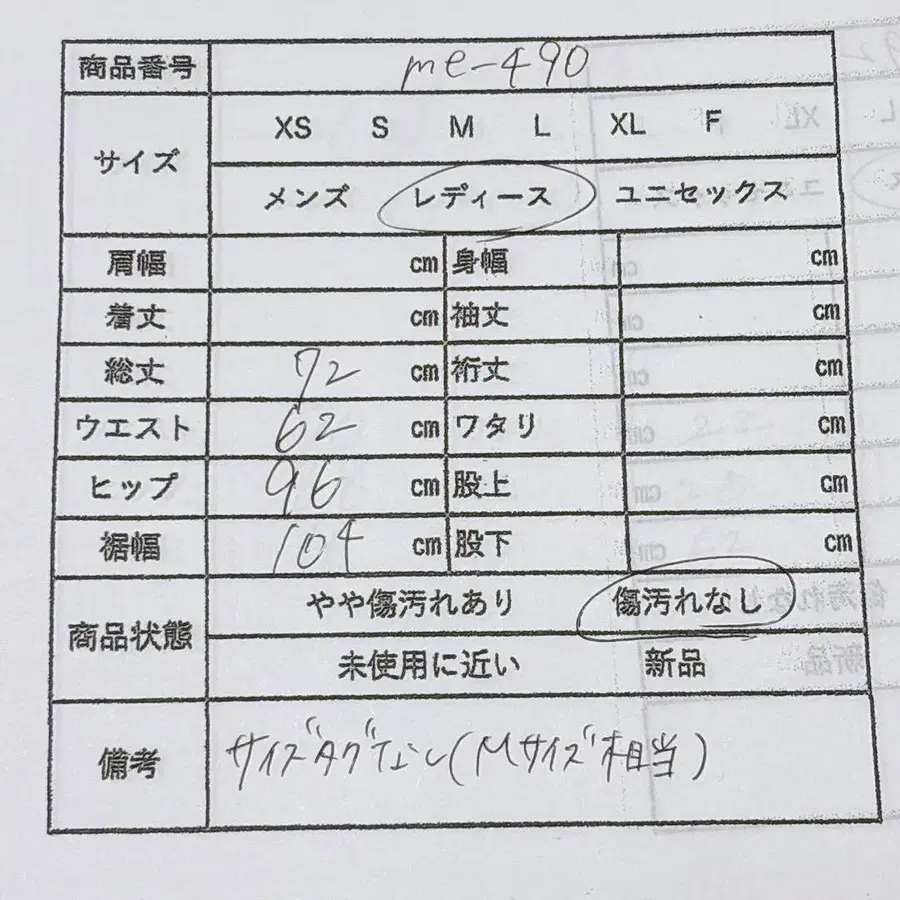 商品番号 me-490
サイズ XS S M L XL F
メンズ レディース ユニセックス
肩幅 cm 身幅 cm
着丈 cm 袖丈 cm
総丈 72 cm 裄丈 cm
ウエスト 62 cm ワタリ cm
ヒップ 96 cm 股上 cm
裾幅 104 cm 股下 cm
商品状態 やや傷汚れあり 傷汚れなし
未使用に近い 新品
備考 サイズタグなし(Mサイズ相当)